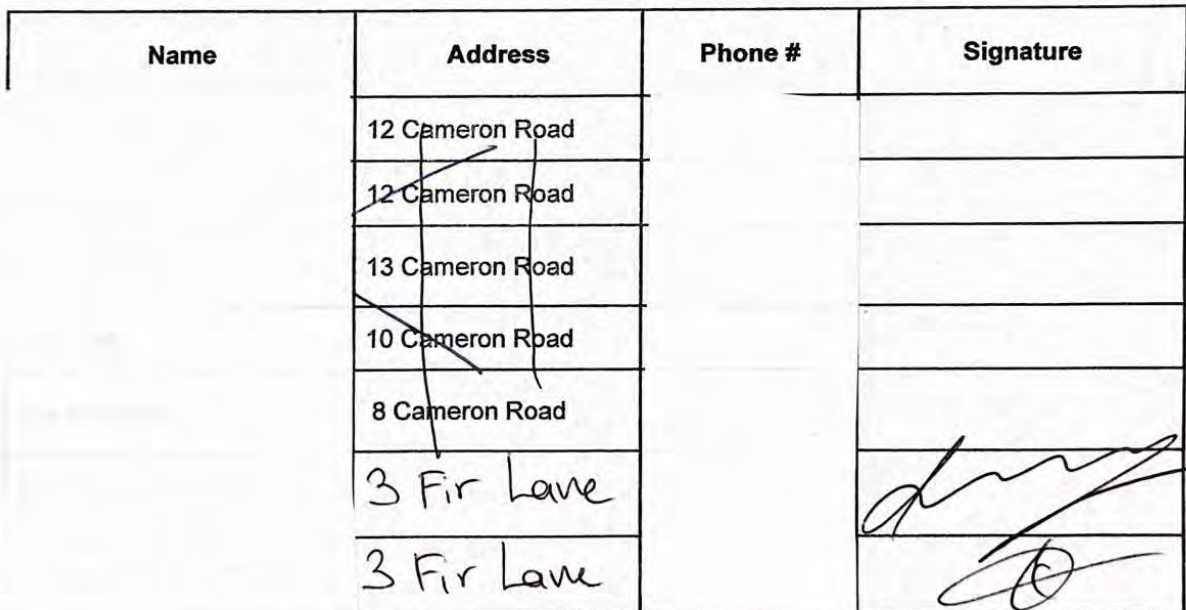 Name Address Phone # Signature
12 Cameron Road
12 Cameron Road
13 Cameron Road
10 Cameron Road
8 Cameron Road
3 Fir Lane
3 Fir Lane